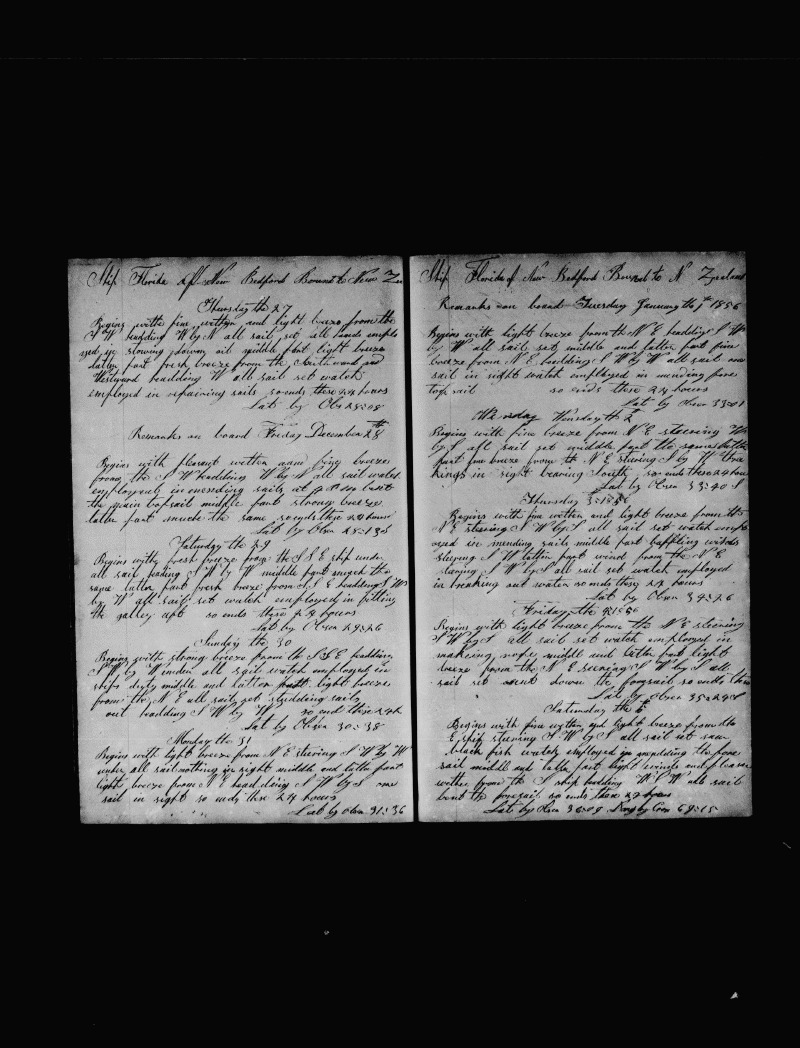 Ship Florida of New Bedford Bound to New Ze
Thursday the 27
Begins with fine wethyr and light breze from the
S W heading W by N all sail set all hands emplo
yed in stowing down oil middle part light breze
latter part fresh breeze from the Southward and
Westward headding W all sail set watch
employed in repairing sails so ends these 24 hours
Lat by Obs 28:08
Remarks on board Friday December 28th
Begins with plesant wether and fine breeze
from the S W headding W by N all sail set watch
employed in mending sails at 4 P M bent
the main topsail middle part strong breeze
latter part much the same so ends these 24 hours
Lat by Obsn 28:138
Saturday the 29
Begins with fresh breeze from the S S E ship under
all sail heading S W by W middle part much the
same latter part fresh breze from S S E headding S W
by W all sail set watch employed in fitting
the galley apt so ends these 24 hours
Lat by Obsn 29:26
Sunday the 30
Begins with strong breeze from the S S E headding
S W by W under all sail watch employed in
ships duty middle and latter part light breeze
from the N E all sail set studding sails
out headding S W by W so ends these 24 h
Lat by Obsn 30:38
Monday the 31
Begins with light breeze from N E steering S W by W
under all sail nothing in sight middle and latter part
light breeze from N E headding S W by S one
sail in sight so ends these 24 hours
Lat by Obsn 31:36
Ship Florida of New Bedford Bound to N Zealand
Remarks on board Tuesday January the 1st 1856
Begins with light breeze from the N E heading S W
by W all sail set middle and latter part fine
breeze from N E headding S W by W all sail one
sail in sight watch employed in mending fore
top sail so ends these 24 hours
Lat by Obsn 33:01
Wensday the 2
Begins with fine breeze from N E steering W
by S all sail set middle part the same latter
part fine breeze from the N E steering S by W three
kings in sight bearing South so ends these 24 hours
Lat by Obsn 33:40 S
Thursday 3 1856
Begins with fine wether and light breeze from the
N E steering S W by S all sail set watch empl
oyed in mending sails middle part baffling winds
steering S W latter part wind from the N E
steering S W by S all sail set watch employed
in breaking out water so ends these 24 hours
Lat by Obsn 34:26
Friday the 4 1856
Begins with light breeze from the N E steering
S W by S all sail set watch employed in
making rope middle and latter part light
breeze from the N E steering S W by S all
sail set sent down the foresail so ends
Lat by Obsn 35:24 S
Saturday the 5
Begins with fine wether and light breeze from the
E ship steering S W by S all sail set saw
black fish watch employed in mending the fore
sail middle and latter part light winds and plesant
wether from the S ship headding W S W all sail
bent the foresail so ends these 24 hours
Lat by Obsn 36:09 Long by Cron 69:15